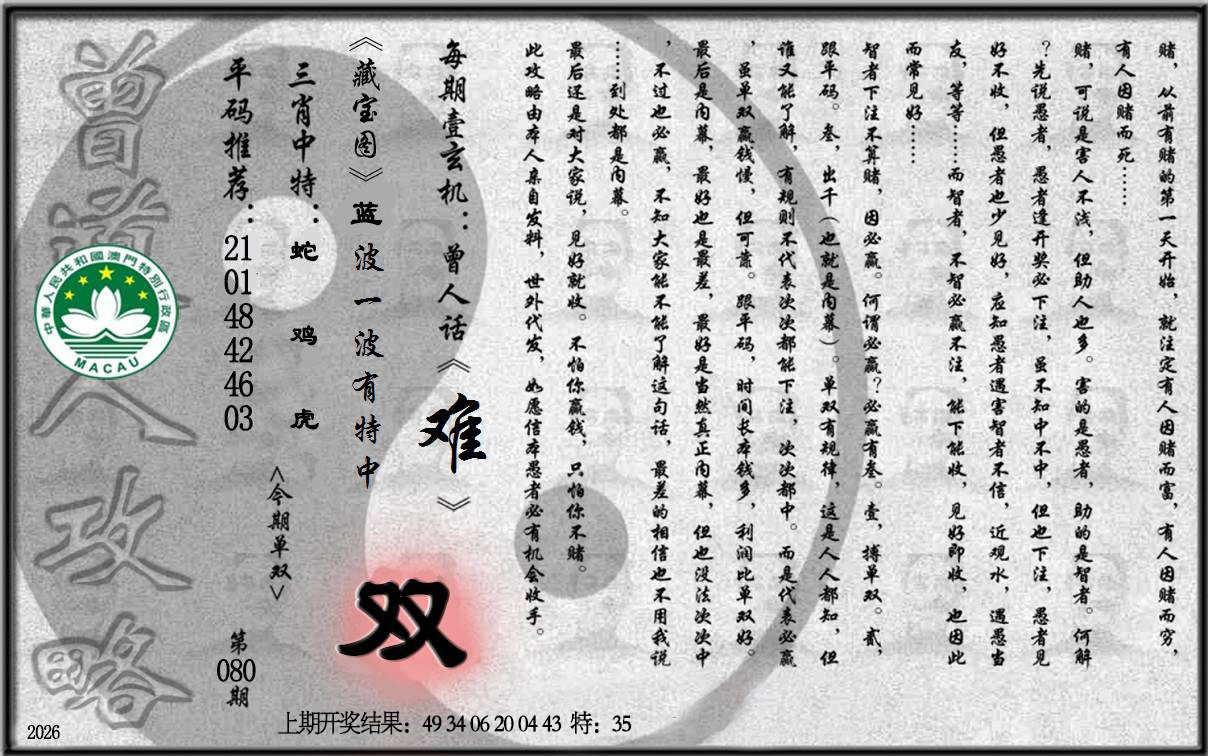 赌，从前有赌的第一天开始，就注定有人因赌而富，有人因赌而穷，
有人因赌而死……
赌，可说是害人不浅，但助人也多。害的是愚者，助的是智者。何解
？先说愚者，愚者逢开奖必下注，虽不知中不中，但也下注，愚者见
好不收，但愚者也少见好，应知愚者遇害智者不信，近观水，遇愚当
友，等等……而智者，不智必赢不注，能下能收，见好即收，也因此
而常见好……
智者下注不算赌，因必赢。何谓必赢？必赢有叁。壹，搏单双。贰，
跟平码。叁，出千（也就是内幕）。单双有规律，这是人人都知，但
谁又能了解，有规则不代表次次都能下注，次次都中。而是代表必赢
，虽单双赢钱慢，但可靠。跟平码，时间长本钱多，利润比单双好。
最后是内幕，最好也是最差，最好是当然真正内幕，但也没法次次中
，不过也必赢，不知大家能不能了解这句话，最差的相信也不用我说
……到处都是内幕。
最后还是对大家说，见好就收。不怕你赢钱，只怕你不赌。
此攻略由本人亲自发料，世外代发，如愿信本愚者必有机会收手。
每期壹玄机：曾人话《难》
《藏宝图》蓝波一波有特中
双
三肖中特：蛇 鸡 虎
<今期单双>
平码推荐：21 01 48 42 46 03
第080期
曾道人攻略
中華人民共和國澳門特別行政區
MACAU
上期开奖结果：49 34 06 20 04 43 特：35
2026